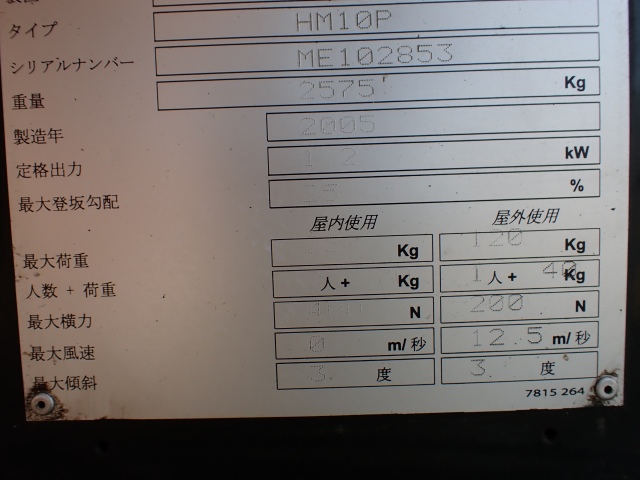 タイプ HM10P
シリアルナンバー ME102853
重量 2575 Kg
製造年 2005
定格出力 12 kW
最大登坂勾配 %
屋内使用 屋外使用
最大荷重 Kg 120 Kg
人数 + 荷重 人 + Kg 1 人 + 40 Kg
最大横力 N 200 N
最大風速 0 m/秒 12.5 m/秒
最大傾斜 3. 度 3. 度
7815 264